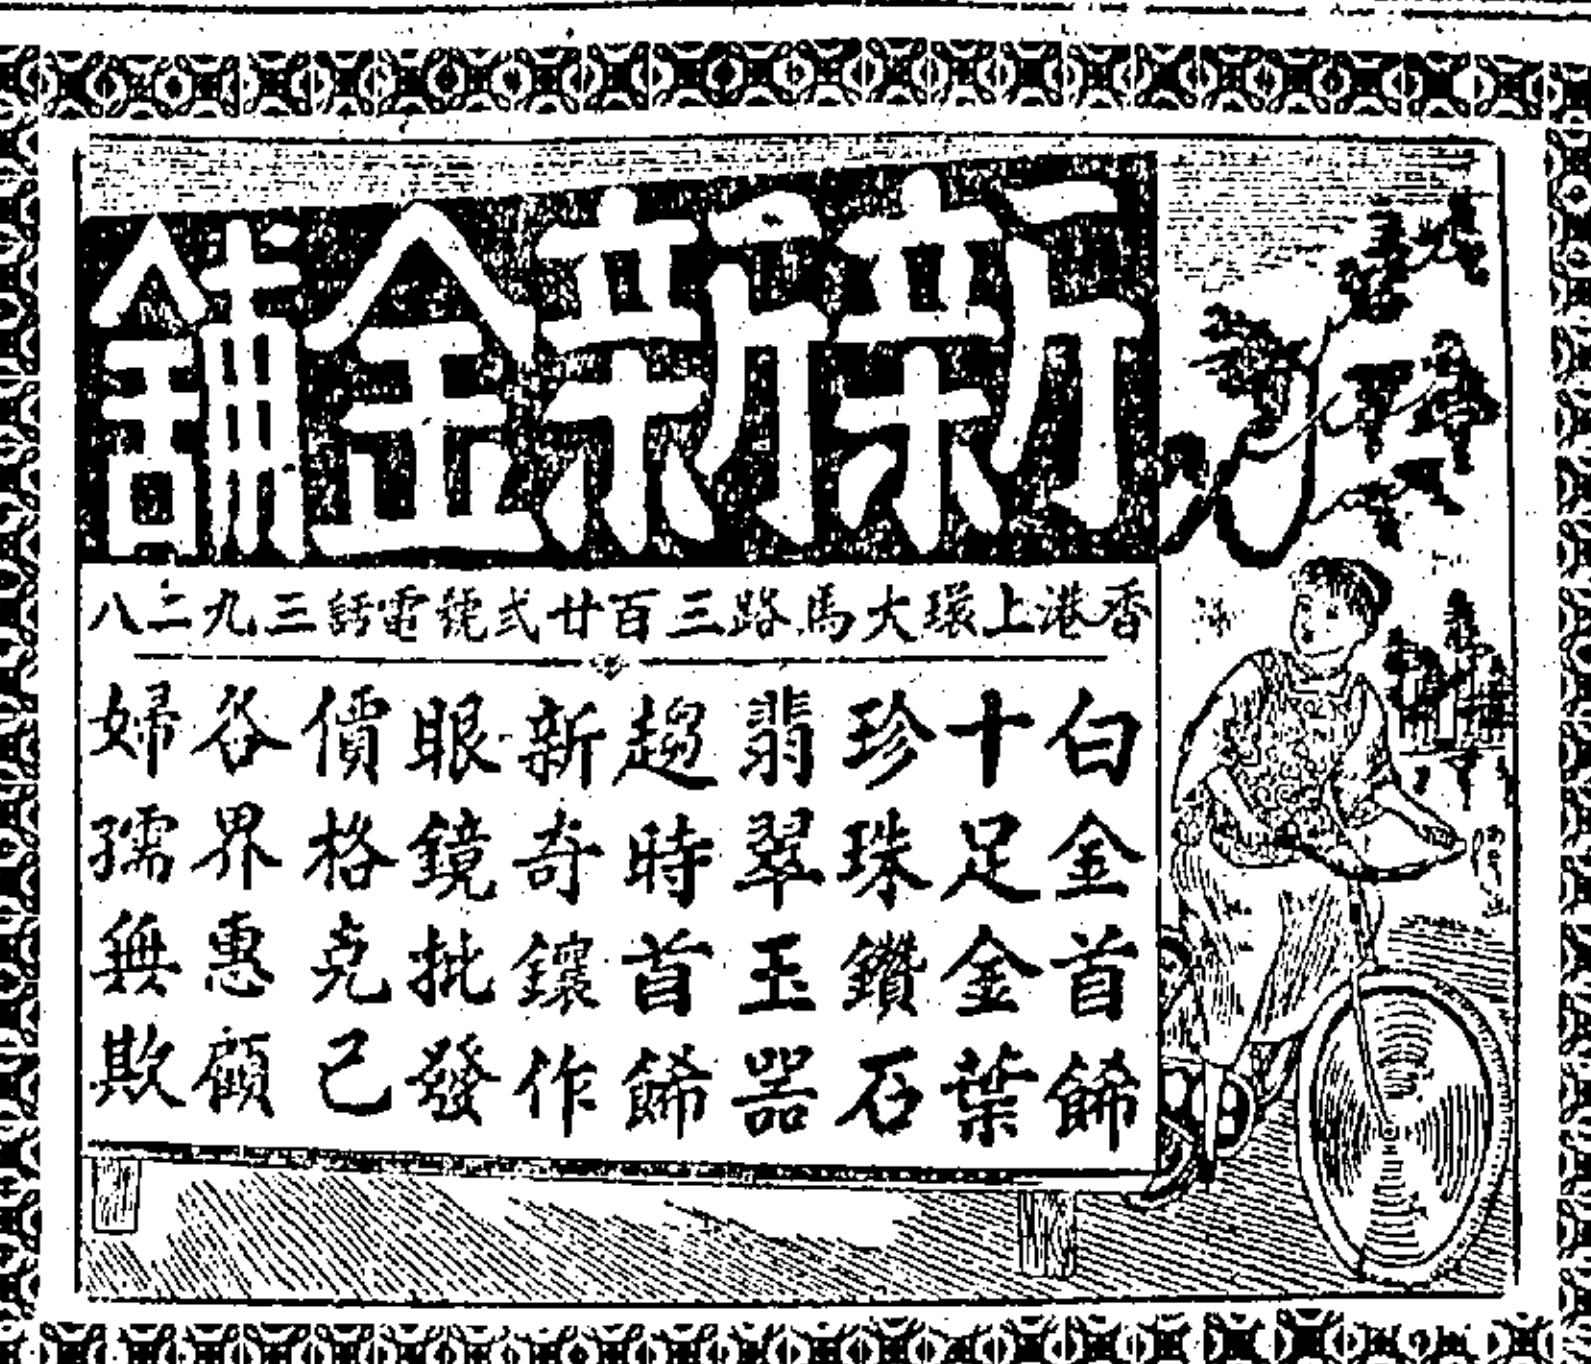 新新金鋪
香港上環大馬路三百廿弍號電話三九二八
白金首餙
十足金葉
珍珠鑽石
翡翠玉器
趨時首餙
新奇鑲作
眼鏡批發
價格克己
各界惠顧
婦孺無欺